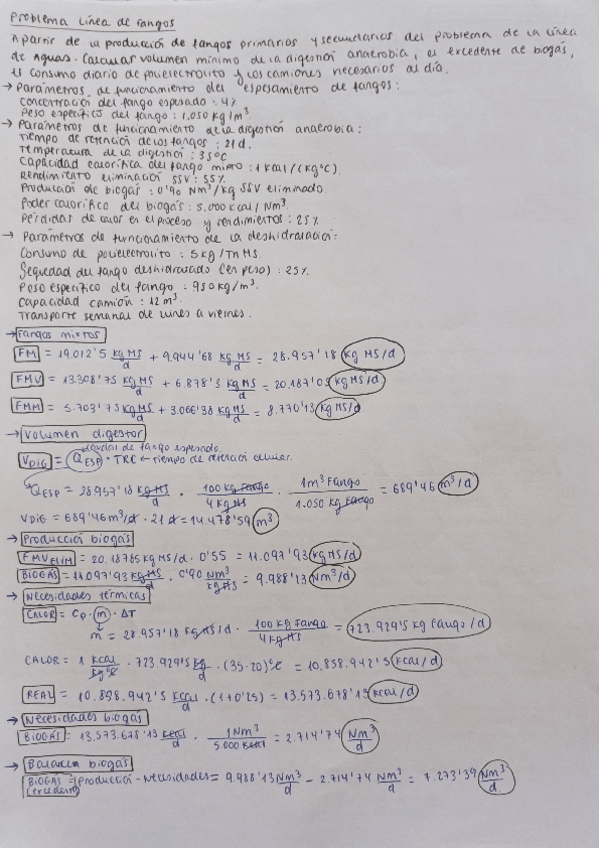 Problema línea de fangos
A partir de la producción de fangos primarios y secundarios del problema de la línea
de aguas. Calcular volumen mínimo de la digestión anaerobia, el excedente de biogás,
el consumo diario de polielectrolito y los camiones necesarios al día.
→ Parámetros de funcionamiento del espesamiento de fangos:
Concentración del fango espesado: 4%
Peso específico del fango: 1.050 kg/m³.
→ Parámetros de funcionamiento de la digestión anaerobia:
Tiempo de retención de los fangos: 21d.
Temperatura de la digestión: 35ºC
Capacidad calorífica del fango mixto: 1 kcal/(kgºC)
Rendimiento eliminación SSV: 55%
Producción de biogás: 0'90 Nm³/kg SSV eliminado.
Poder calorífico del biogás: 5.000 kcal/Nm³.
Pérdidas de calor en el proceso y rendimientos: 25%
→ Parámetros de funcionamiento de la deshidratación:
Consumo de polielectrolito: 5kg/TnMS.
Sequedad del fango deshidratado (en peso): 25%
Peso específico del fango: 950 kg/m³.
Capacidad camión: 12 m³.
Transporte semanal de lunes a viernes.
→ Fangos mixtos
FM = 19.012'5 kg MS/d + 9.944'68 kg MS/d = 28.957'18 kg MS/d
FMV = 13.308'75 kg MS/d + 6.878'3 kg MS/d = 20.187'05 kg MS/d
FMM = 5.703'75 kg MS/d + 3.066'38 kg MS/d = 8.770'13 kg MS/d
→ Volumen digestor
caudal de fango espesado.
VDIG = QESP · TRC ← tiempo de retención celular.
QESP = 28.957'18 kg MS/d · 100 kg fango/4 kg MS · 1m³ Fango/1.050 kg fango = 689'46 m³/d
VDIG = 689'46 m³/d · 21 d = 14.478'59 m³
→ Producción biogás
FMVELIM = 20.187'05 kg MS/d · 0'55 = 11.097'93 kg MS/d
BIOGÁS = 11.097'93 kg MS/d · 0'90 Nm³/kg MS = 9.988'13 Nm³/d
→ Necesidades térmicas
CALOR = Cp · m · ΔT
m = 28.957'18 kg MS/d · 100 kg Fango/4 kg MS = 723.929'5 kg fango/d
CALOR = 1 kcal/kgºC · 723.929'5 kg/d · (35-20)ºC = 10.858.942'5 kcal/d
REAL = 10.858.942'5 kcal/d · (1+0'25) = 13.573.678'13 kcal/d
→ Necesidades biogás
BIOGÁS = 13.573.678'13 kcal/d · 1Nm³/5.000 kcal = 2.714'74 Nm³/d
→ Balance biogás
BIOGÁS = Producción - Necesidades = 9.988'13 Nm³/d - 2.714'74 Nm³/d = 7.273'39 Nm³/d.
(excedente)